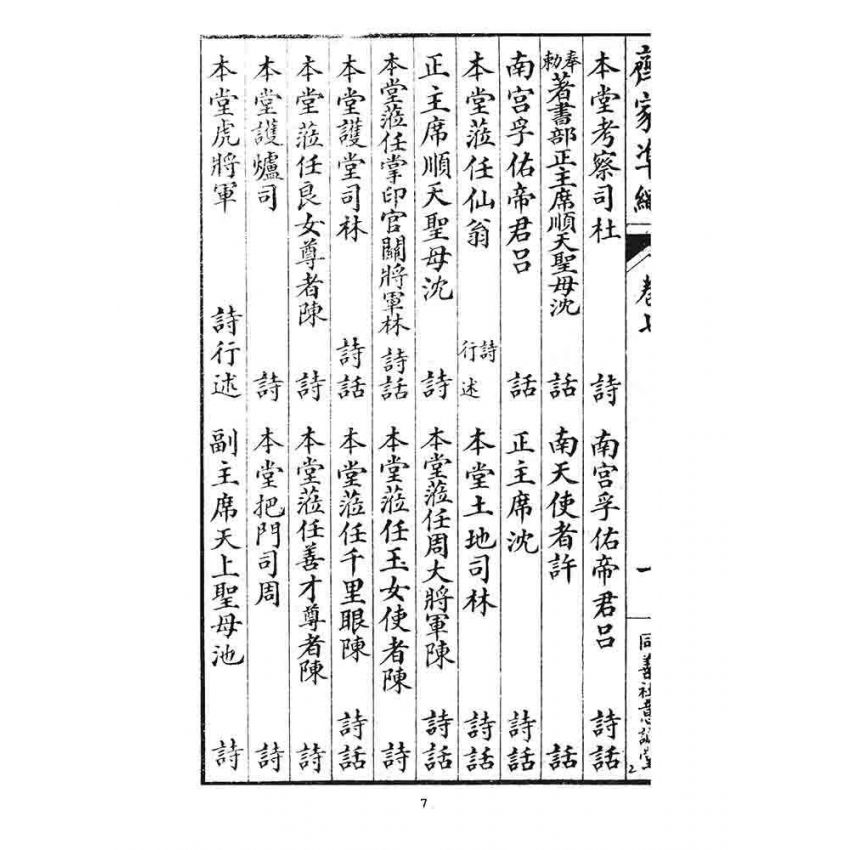 齊家準繩 卷七 一 同善社意誠堂
本堂考察司杜 詩 南宮孚佑帝君呂 詩話
奉勅著書部正主席順天聖母沈 話 南天使者許 話
南宮孚佑帝君呂 話 正主席沈 詩話
本堂蒞任仙翁 詩行述 本堂土地司林 詩話
正主席順天聖母沈 詩 本堂蒞任周大將軍陳 詩話
本堂蒞任掌印官關將軍林 詩話 本堂蒞任玉女使者陳 詩
本堂護堂司林 詩話 本堂蒞任千里眼陳 詩話
本堂蒞任良女尊者陳 詩 本堂蒞任善才尊者陳 詩
本堂護爐司 詩 本堂把門司周 詩
本堂虎將軍 詩行述 副主席天上聖母池 詩
2
7